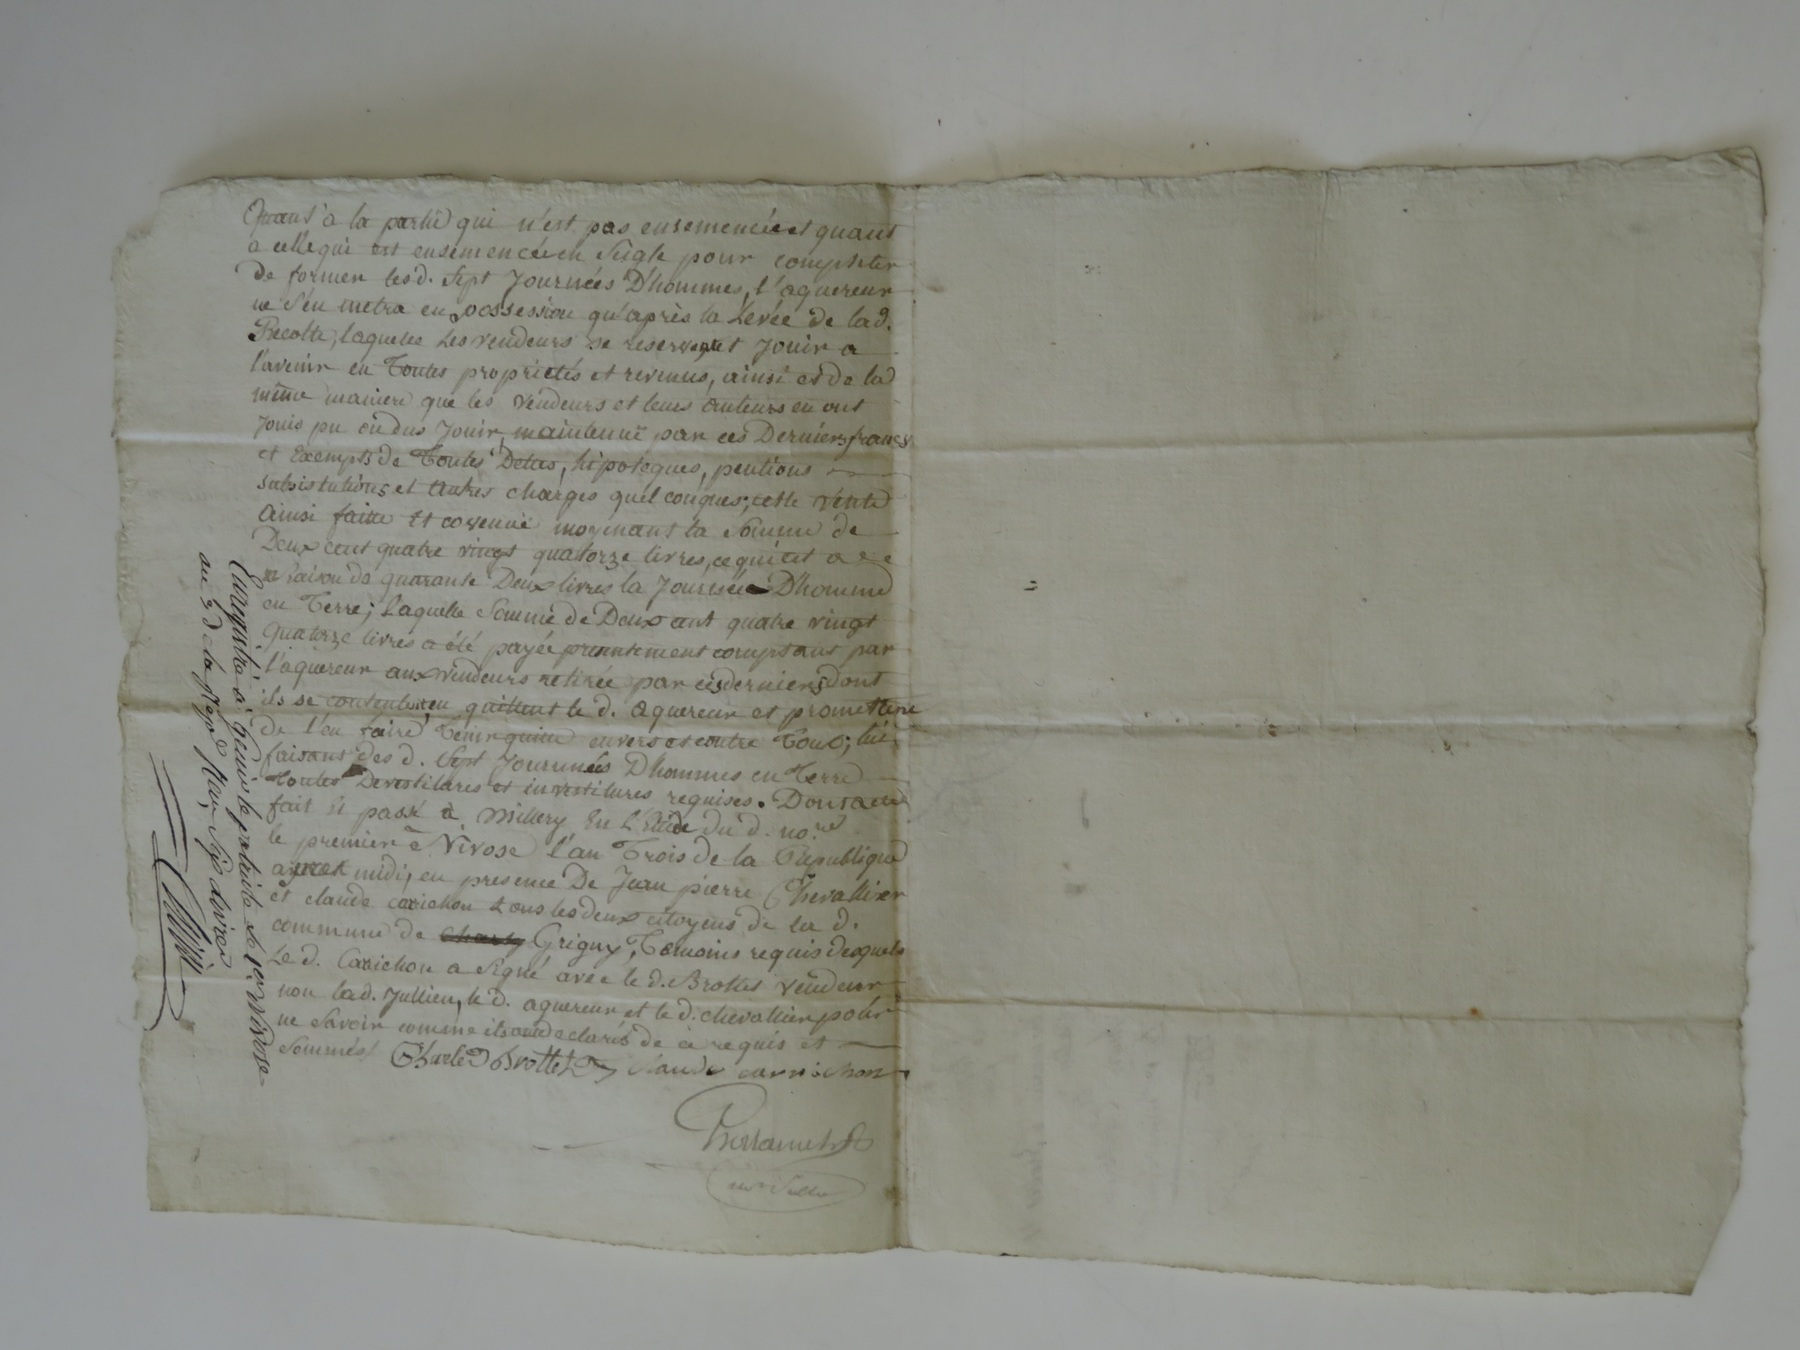 Quant à la partie qui n'est pas ensemencée et quant
a celle qui est ensemencée en Seigle pour completer
de former lesd. Sept Journées D'hommes, l'aquereur
ne s'en metra en possession qu'après la Levée de lad.
Recolte, laquelle Les vendeurs se reservent Jouir a
l'avenir en Toutes proprietés et revenus, ainsi et de la
même maniere que les vendeurs et leurs auteurs en ont
Jouis pu ou dus Jouir, maintenue par ces Derniers francs
et Exempts de Toutes Dettes, hipoteques, pentions
substitutions et autres charges quelconques; cette vente
ainsi faitte et covenue moyenant la Somme de
Deux cent quatre vingt quatorze livres, ce qui est a
raison de quarante Deux livres la Journée D'homme
en Terre; Laquelle Somme de Deux cent quatre vingt
quatorze livres a été payée presentement comptant par
l'aquereur aux vendeurs retirée par ces derniers dont
ils se contentent en quittent le d. aquereur et promettent
de l'en faire Tenir quitte envers et contre Tous; lui
faisant des d. Sept Journées D'hommes en Terre
Toutes Devestitures et investitures requises. Dont acte
fait et passé à Millery En L'Etude du d. no.re
le premier Nivose l'an Trois de la Republique
apres midi, en presence De Jean pierre Chevallier
et claude carichon tous les deux citoyens de la d.
commune de Grigny, Temoins requis desquels
Le d. Carichon a Signé avec le d. Brottet vendeur
non lad. Jullien, le d. aquereur et le d. chevallier pour
ne Savoir comme ils ont declarés de ce requis et
Sommés. Charle Brottet Claude carrichon
Enregistré à le de 1er nivose
au 3 de la Rep.